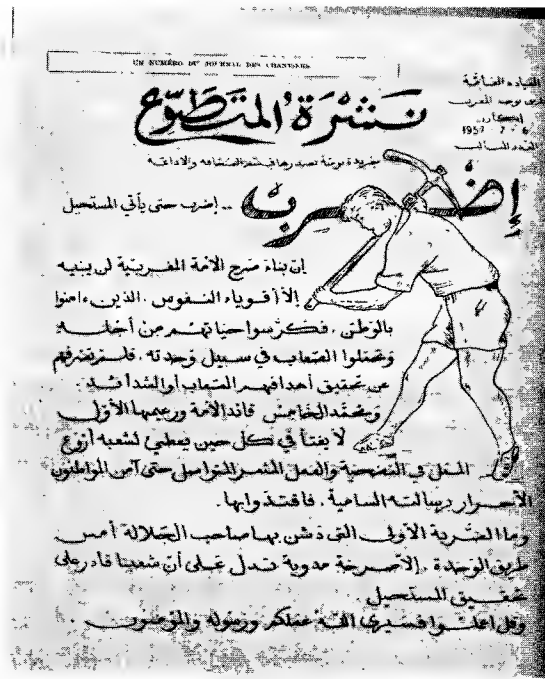 UN NUMÉRO DU JOURNAL DES CHANTIERS
القيادة العامة
طريق وحدة المغرب
1957 - 7 - 6
نشرة المتطوع
جريدة يومية تصدرها قسم الصحافة والإذاعة
إضرب
.. إضرب حتى يأتي المستحيل
إن بناء صرح الأمة المغربية لن يبنيه
إلا أقوياء النفوس ، الذين ءامنوا
بالوطن ، فكرسوا حياتهم من أجله
وتحملوا الصعاب في سبيل وحدته . فلم تصرفهم
عن تحقيق أهدافهم الصعاب أو الشدائد .
ومحمد الخامس قائد الأمة وزعيمها الأول
لا يفتأ في كل حين يعطي لشعبه أروع
المثل في التضحية والعمل المثمر المتواصل حتى آمن المواطنون
الأحرار برسالته السامية . فاقتدوا بها .
وما الضربة الأولى التي دشن بها صاحب الجلالة أمس
طريق الوحدة ، إلا صرخة مدوية تدل على أن شعبنا قادر على
تحقيق المستحيل .
وقل اعملوا فسيرى الله عملكم ورسوله والمؤمنون .